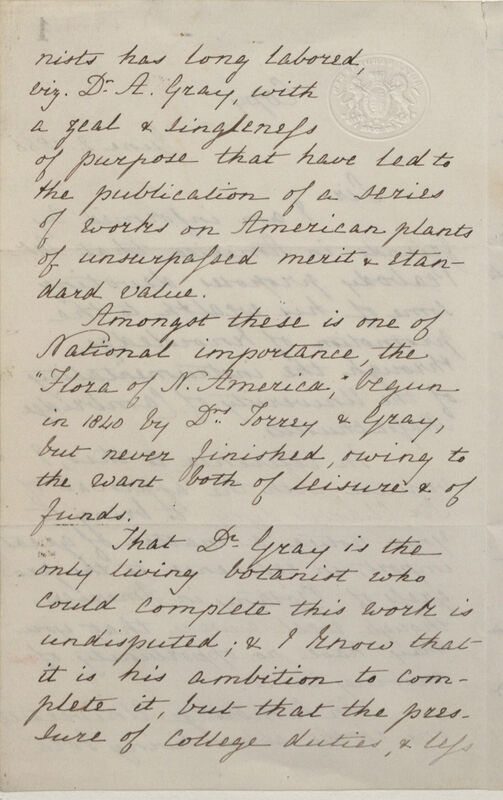 nists has long labored,
viz. Dr. A. Gray, with
a zeal & singleness
of purpose that have led to
the publication of a series
of works on American plants
of unsurpassed merit & stan-
dard value.
Amongst these is one of
National importance, the
"Flora of N. America," begun
in 1840 by Drs. Torrey & Gray,
but never finished, owing to
the want both of leisure & of
funds.
That Dr. Gray is the
only living botanist who
could complete this work is
undisputed; & I know that
it is his ambition to com-
plete it, but that the pres-
sure of College duties, & less